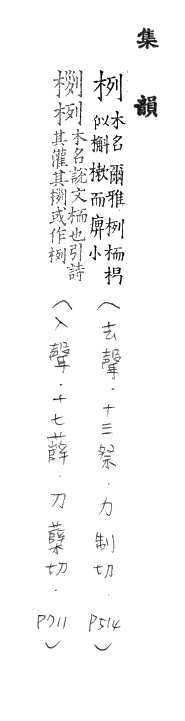 集韻
栵 木名爾雅栵栭
似檞樕而庳小
(去聲．十三祭．力制切．P514)
栵 木名說文栭也引詩
其灌其 或作栵
(入聲．十七薛．力蘖切．P711)